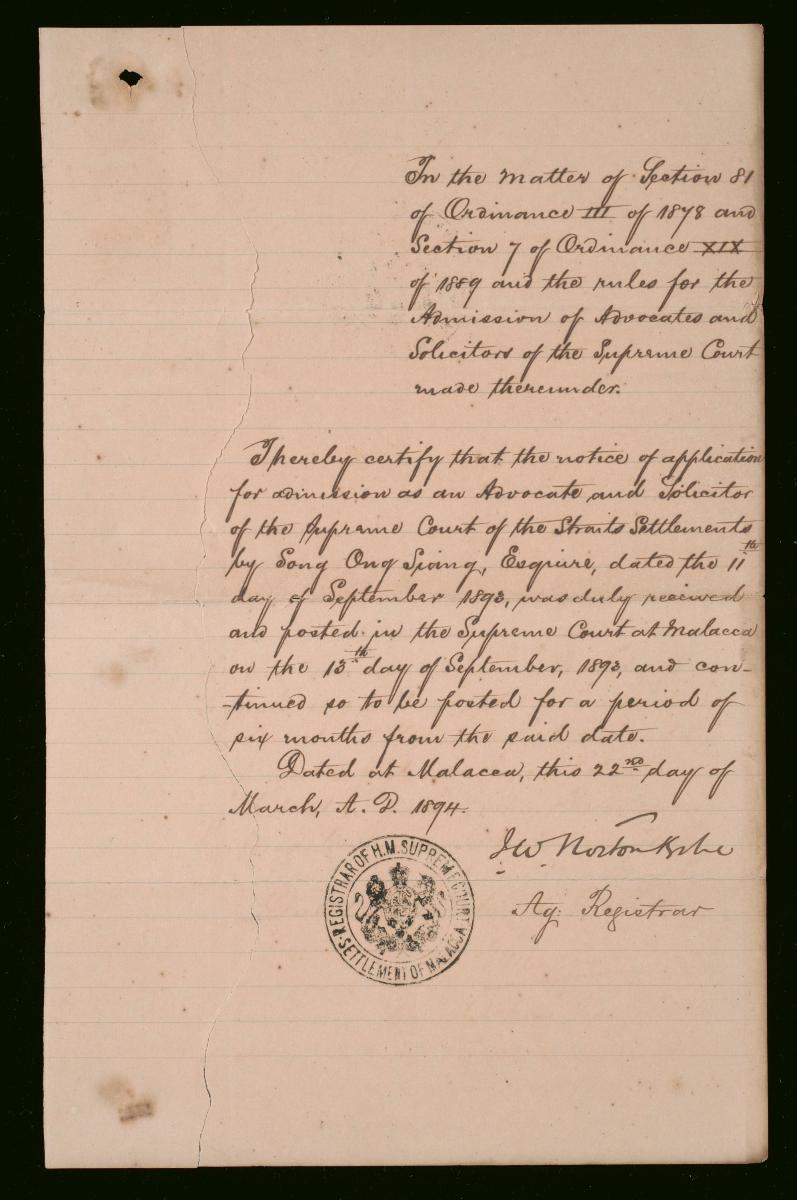 In the matter of Section 81
of Ordinance III of 1878 and
Section 7 of Ordinance XIX
of 1889 and the rules for the
Admission of Advocates and
Solicitors of the Supreme Court
made thereunder.
I hereby certify that the notice of application
for admission as an Advocate and Solicitor
of the Supreme Court of the Straits Settlements
by Song Ong Siang, Esquire, dated the 11th
day of September 1893, was duly received
and posted in the Supreme Court at Malacca
on the 13th day of September, 1893, and con-
-tinued so to be posted for a period of
six months from the said date.
Dated at Malacca, this 22nd day of
March, A. D. 1894.
J W Norton Kyshe
Ag: Registrar
REGISTRAR OF H.M. SUPREME COURT
SETTLEMENT OF MALACCA